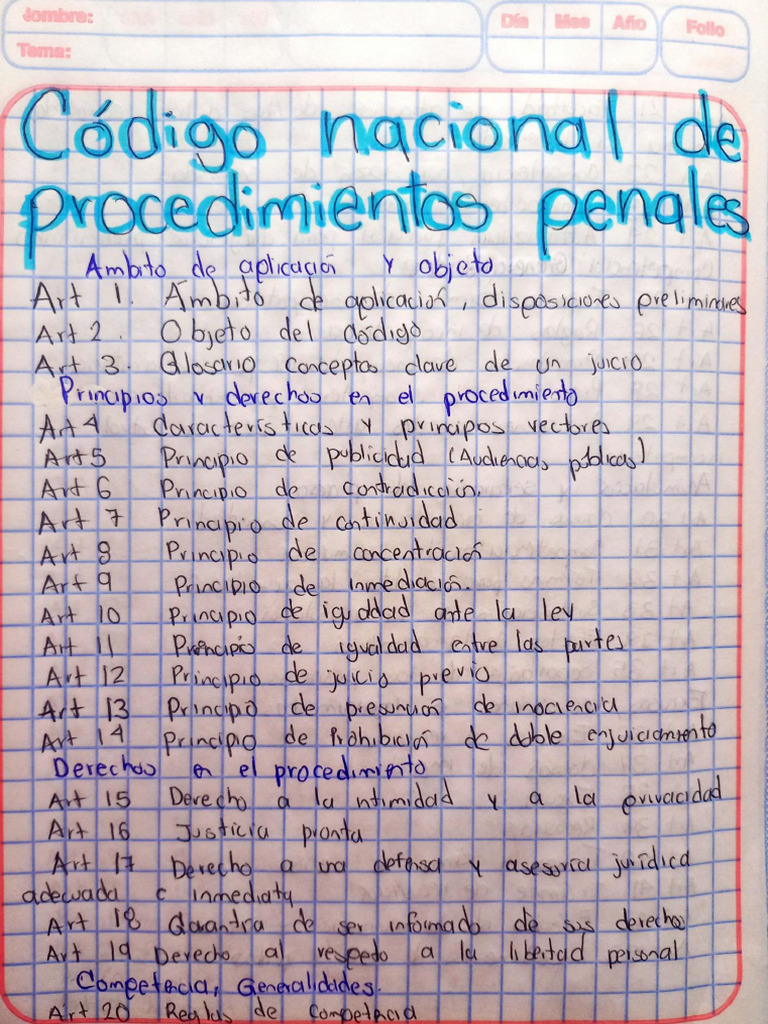 Nombre:
Día Mes Año Folio
Tema:
Código nacional de
procedimientos penales
Ambito de aplicación y objeto
Art 1. Ámbito de aplicación, disposiciones preliminares
Art 2. Objeto del Código
Art 3. Glosario conceptos clave de un juicio
Principios y derechos en el procedimiento
Art 4 Características y principos vectores
Art 5 Principio de publicidad (Audiencias públicas)
Art 6 Principio de contradicción.
Art 7 Principio de continuidad
Art 8 Principio de concentración
Art 9 Principio de inmediación.
Art 10 Principio de igualdad ante la ley
Art 11 Principio de igualdad entre las partes
Art 12 Principio de juicio previo
Art 13 Principio de presunción de inociencia
Art 14 Principio de Prohibición de doble enjuiciamiento
Derechos en el procedimiento
Art 15 Derecho a la intimidad y a la privacidad
Art 16 Justicia pronta
Art 17 Derecho a una defensa y asesoría jurídica
adecuada e inmediata
Art 18 Garantía de ser informado de sus derechos
Art 19 Derecho al respedo a la libertad personal
Competencia, Generalidades.
Art 20 Reglas de competencia